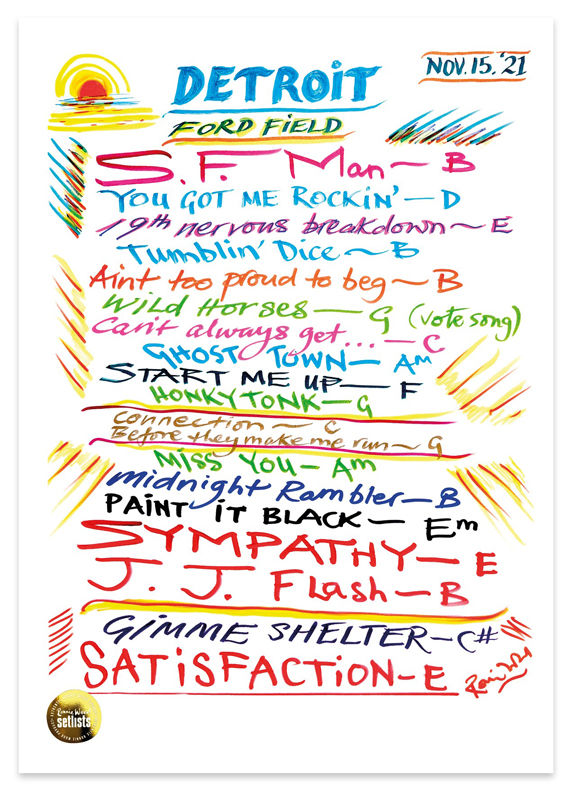 NOV. 15. '21
DETROiT
FORD FiELD
S.F. Man ~ B
YOU GOT ME ROCKiN' — D
19th nervous breakdown ~ E
Tumblin' Dice ~ B
Aint too proud to beg ~ B
WiLD HORSES — G (vote song)
Can't always get... — C
GHOST TOWN — Am
START ME UP — F
HONKY TONK — G
Connection ~ C
Before they make me run ~ G
MiSS YOU — Am
Midnight Rambler — B
PAiNT iT BLACK — Em
SYMPATHY — E
J. J. Flash — B
GiMME SHELTER — C#
SATiSFACTiON — E
Ronnie Wood
setlists